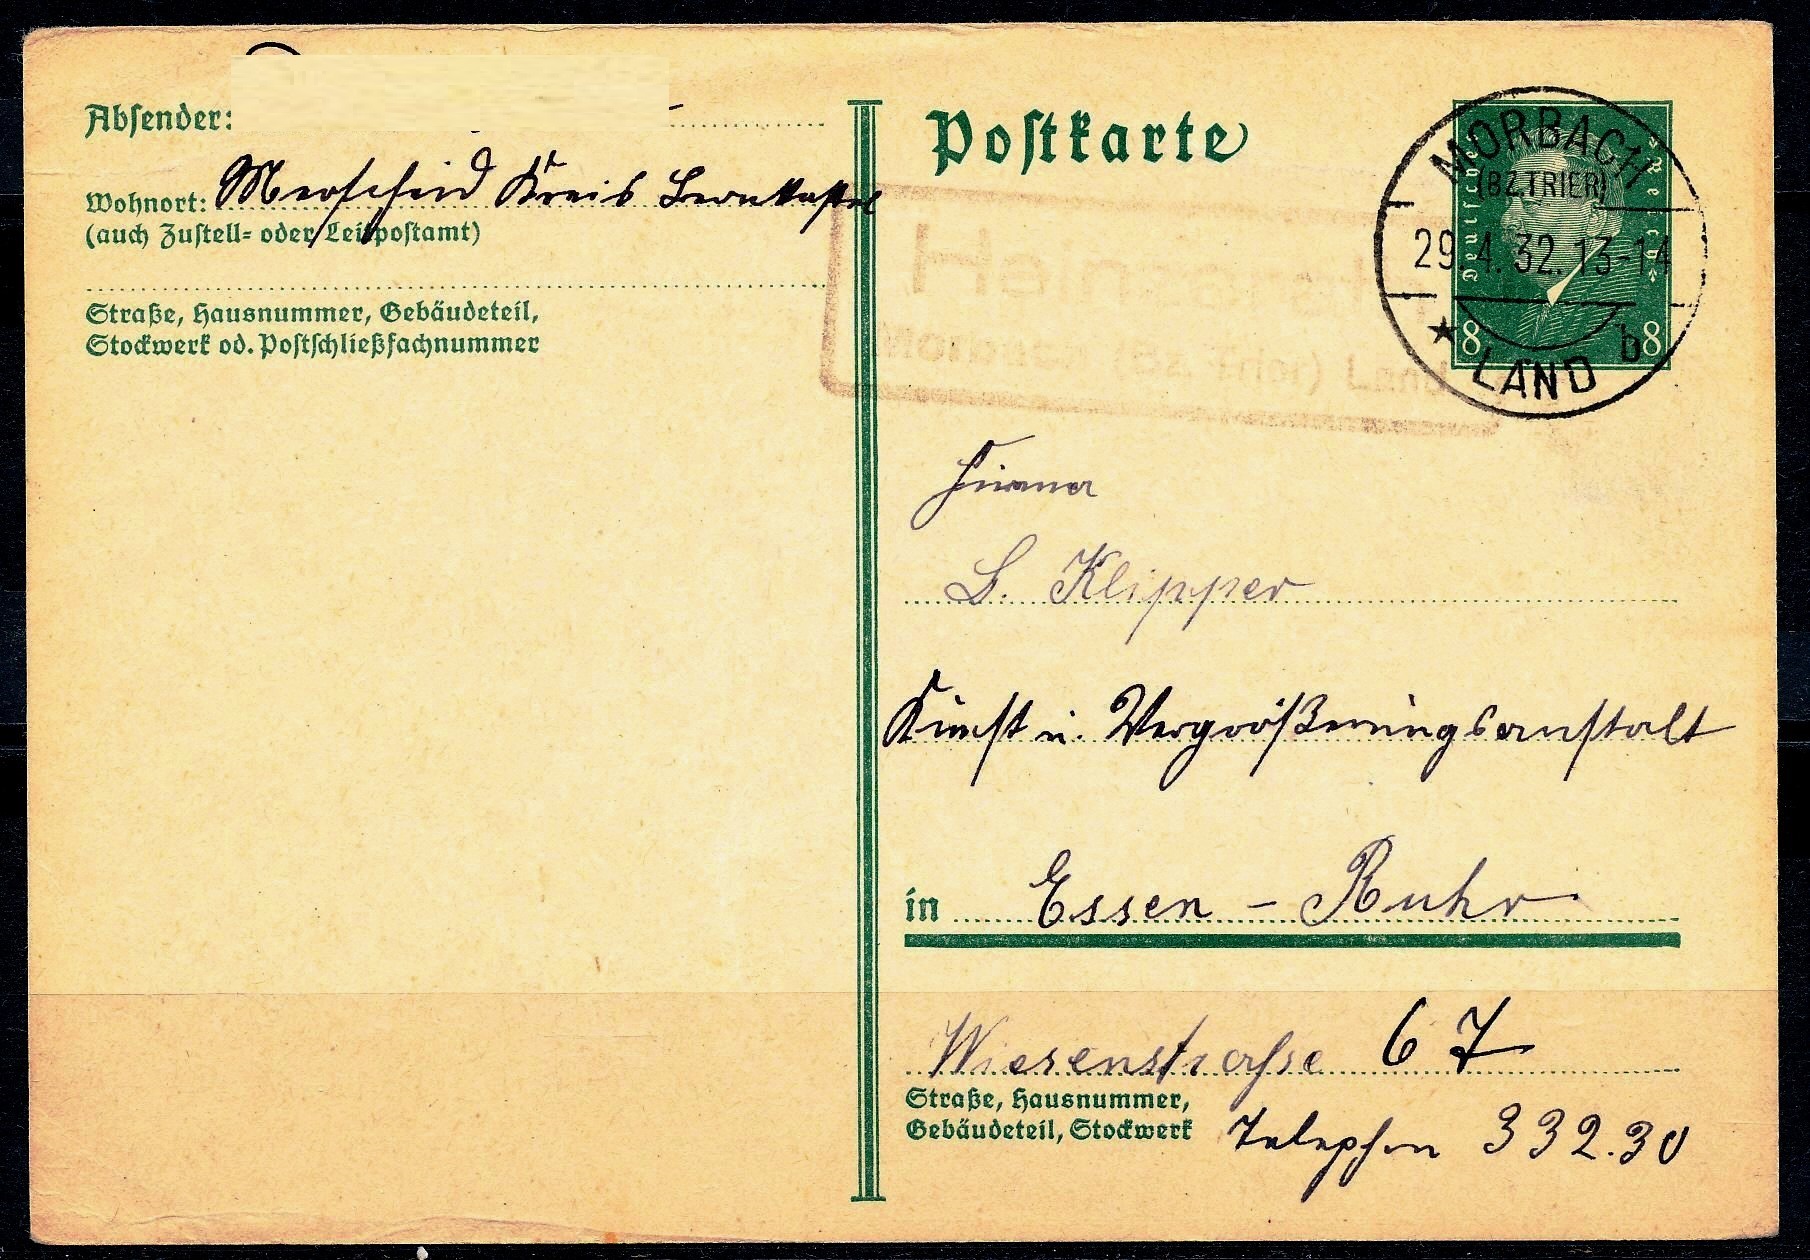 Absender:
Merscheid Kreis Bernkastel
Wohnort:
(auch Zustell- oder Leitpostamt)
Straße, Hausnummer, Gebäudeteil,
Stockwerk od. Postschließfachnummer
Postkarte
Deutsches Reich
8 8
MORBACH
(BZ. TRIER)
29.4.32.13-14
★ LAND b
(Bz. Trier) Land
Firma
L. Klipper
Kunst u. Vergrößerungsanstalt
in Essen - Ruhr
Wiesenstraße 67
Straße, Hausnummer,
Gebäudeteil, Stockwerk
Telephon 332.30